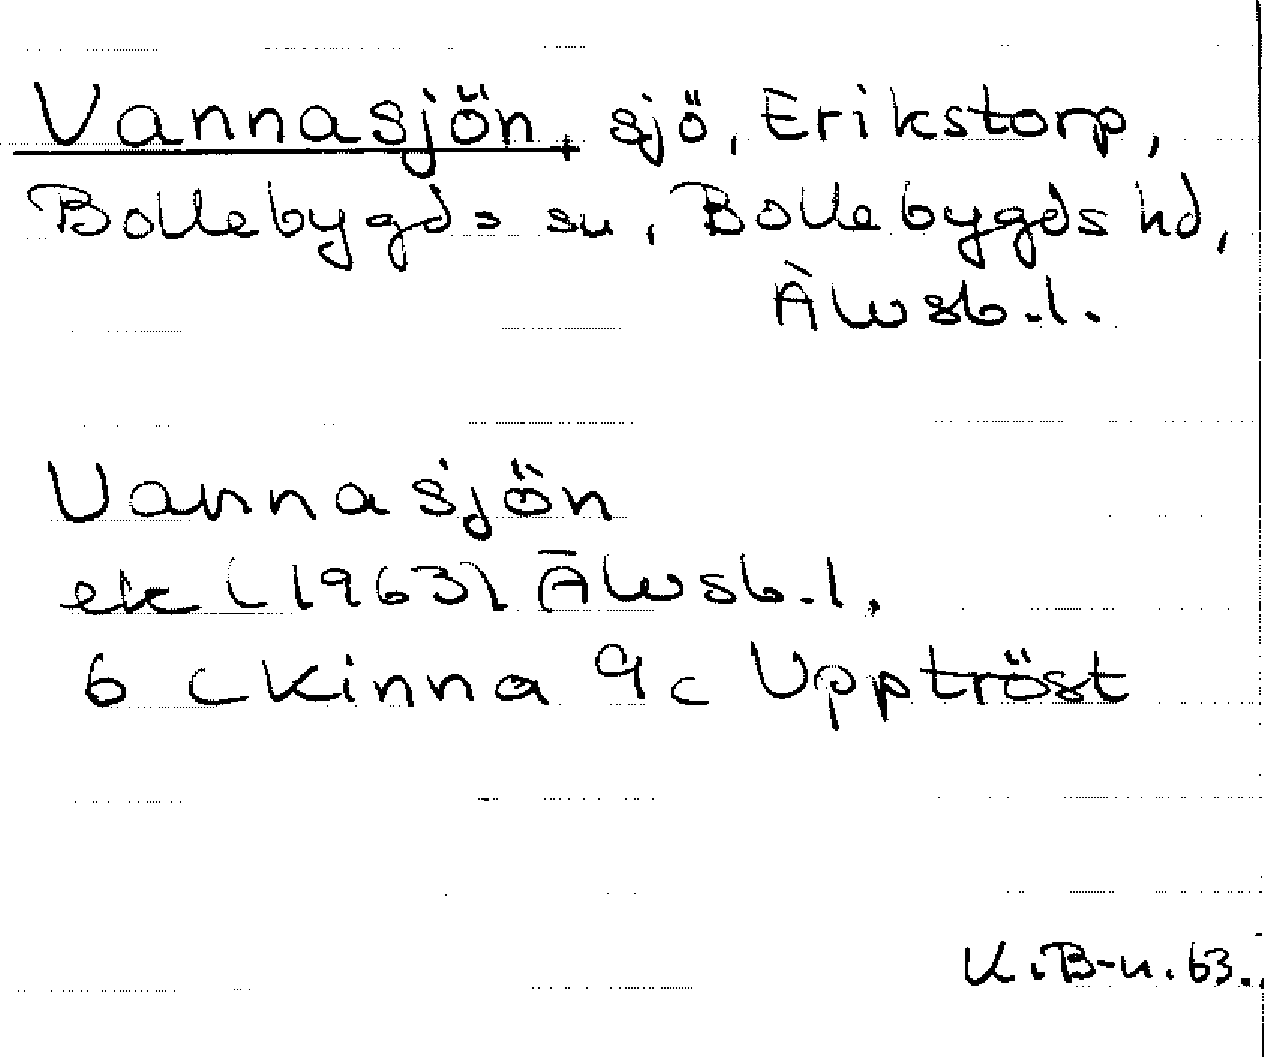 Vannasjön, sjö, Erikstorp,
Bollebygds sn, Bollebygds hd,
Älvsb.l.
Vannasjön
ek (1963) Älvsb.l.
6 c Kinna 9c Upptröst
K.B-n.63.